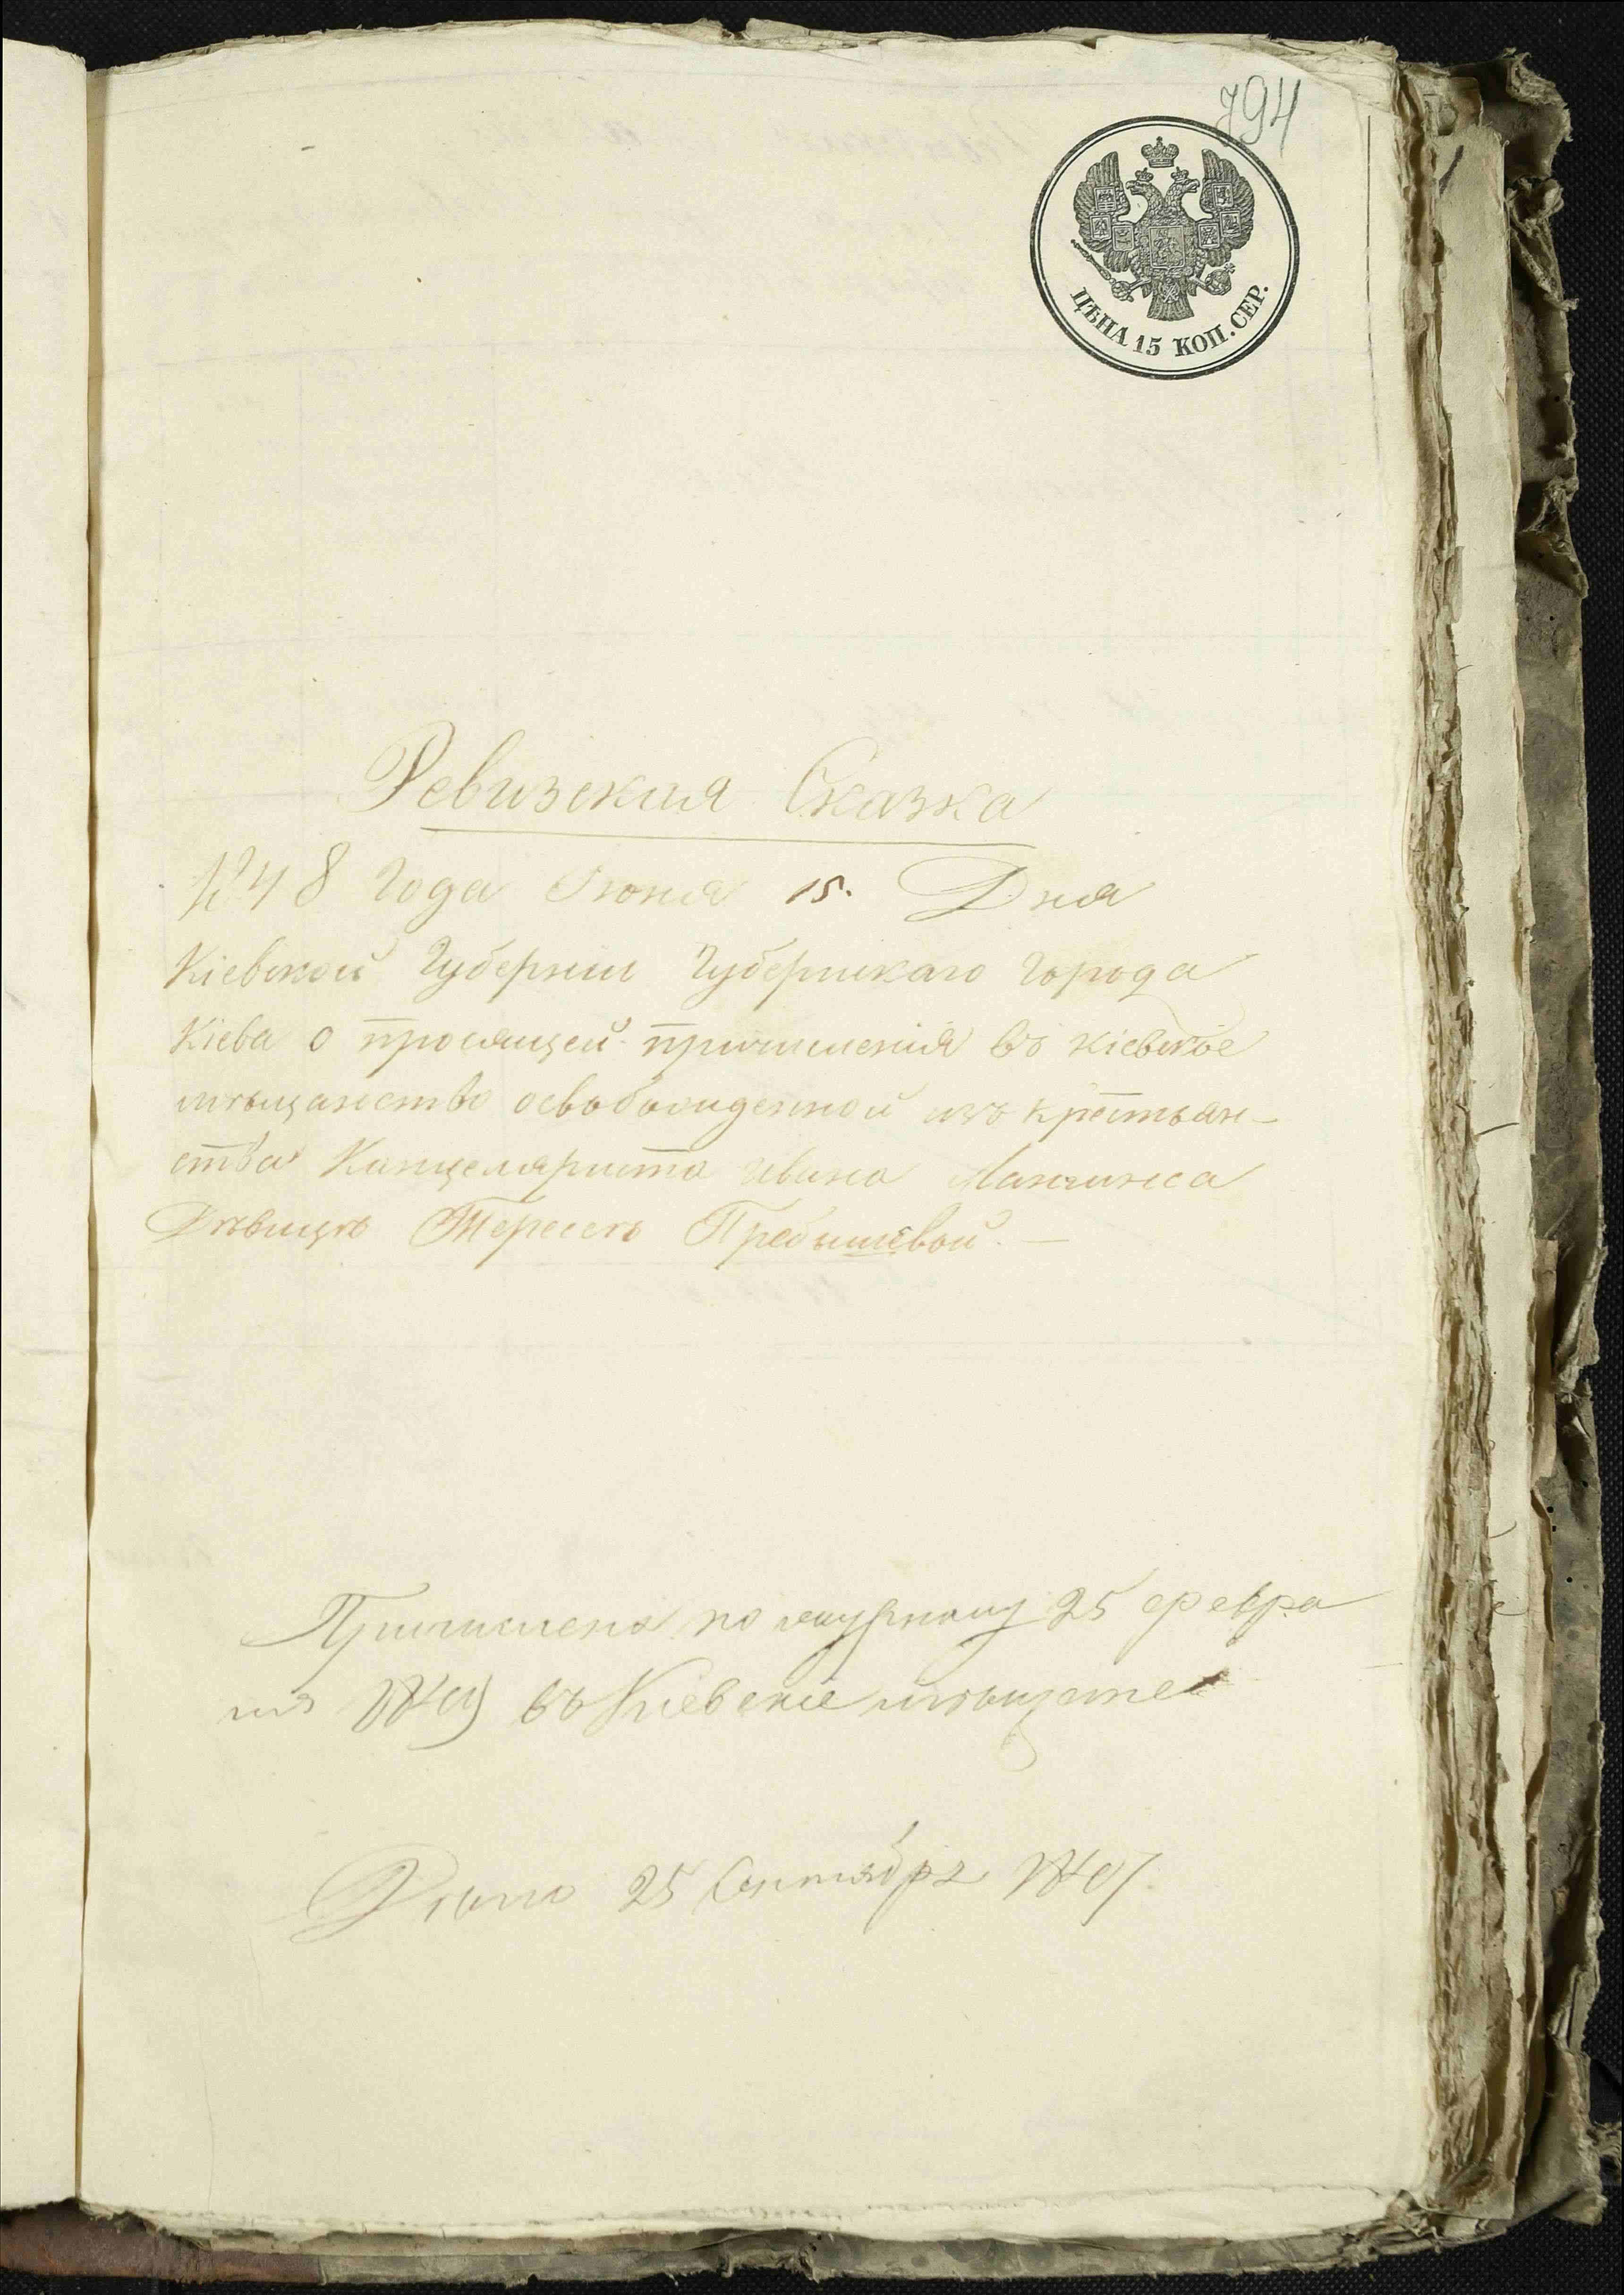 794
ЦѢНА 15 КОП. СЕР.
Ревизская Сказка
1848 Года Июня 15. Дня
Кіевской Губерніи Губернскаго Города
Кіева о просящей причисленія въ Кіевское
мѣщанство освобожденной изъ крестьян-
ства Канцеляриста Ивана
Дѣвицѣ Тересѣ Пребышевой. —
Причислена по журналу 25 февра
ля въ Кіевскіе мѣщане
25 Сентября